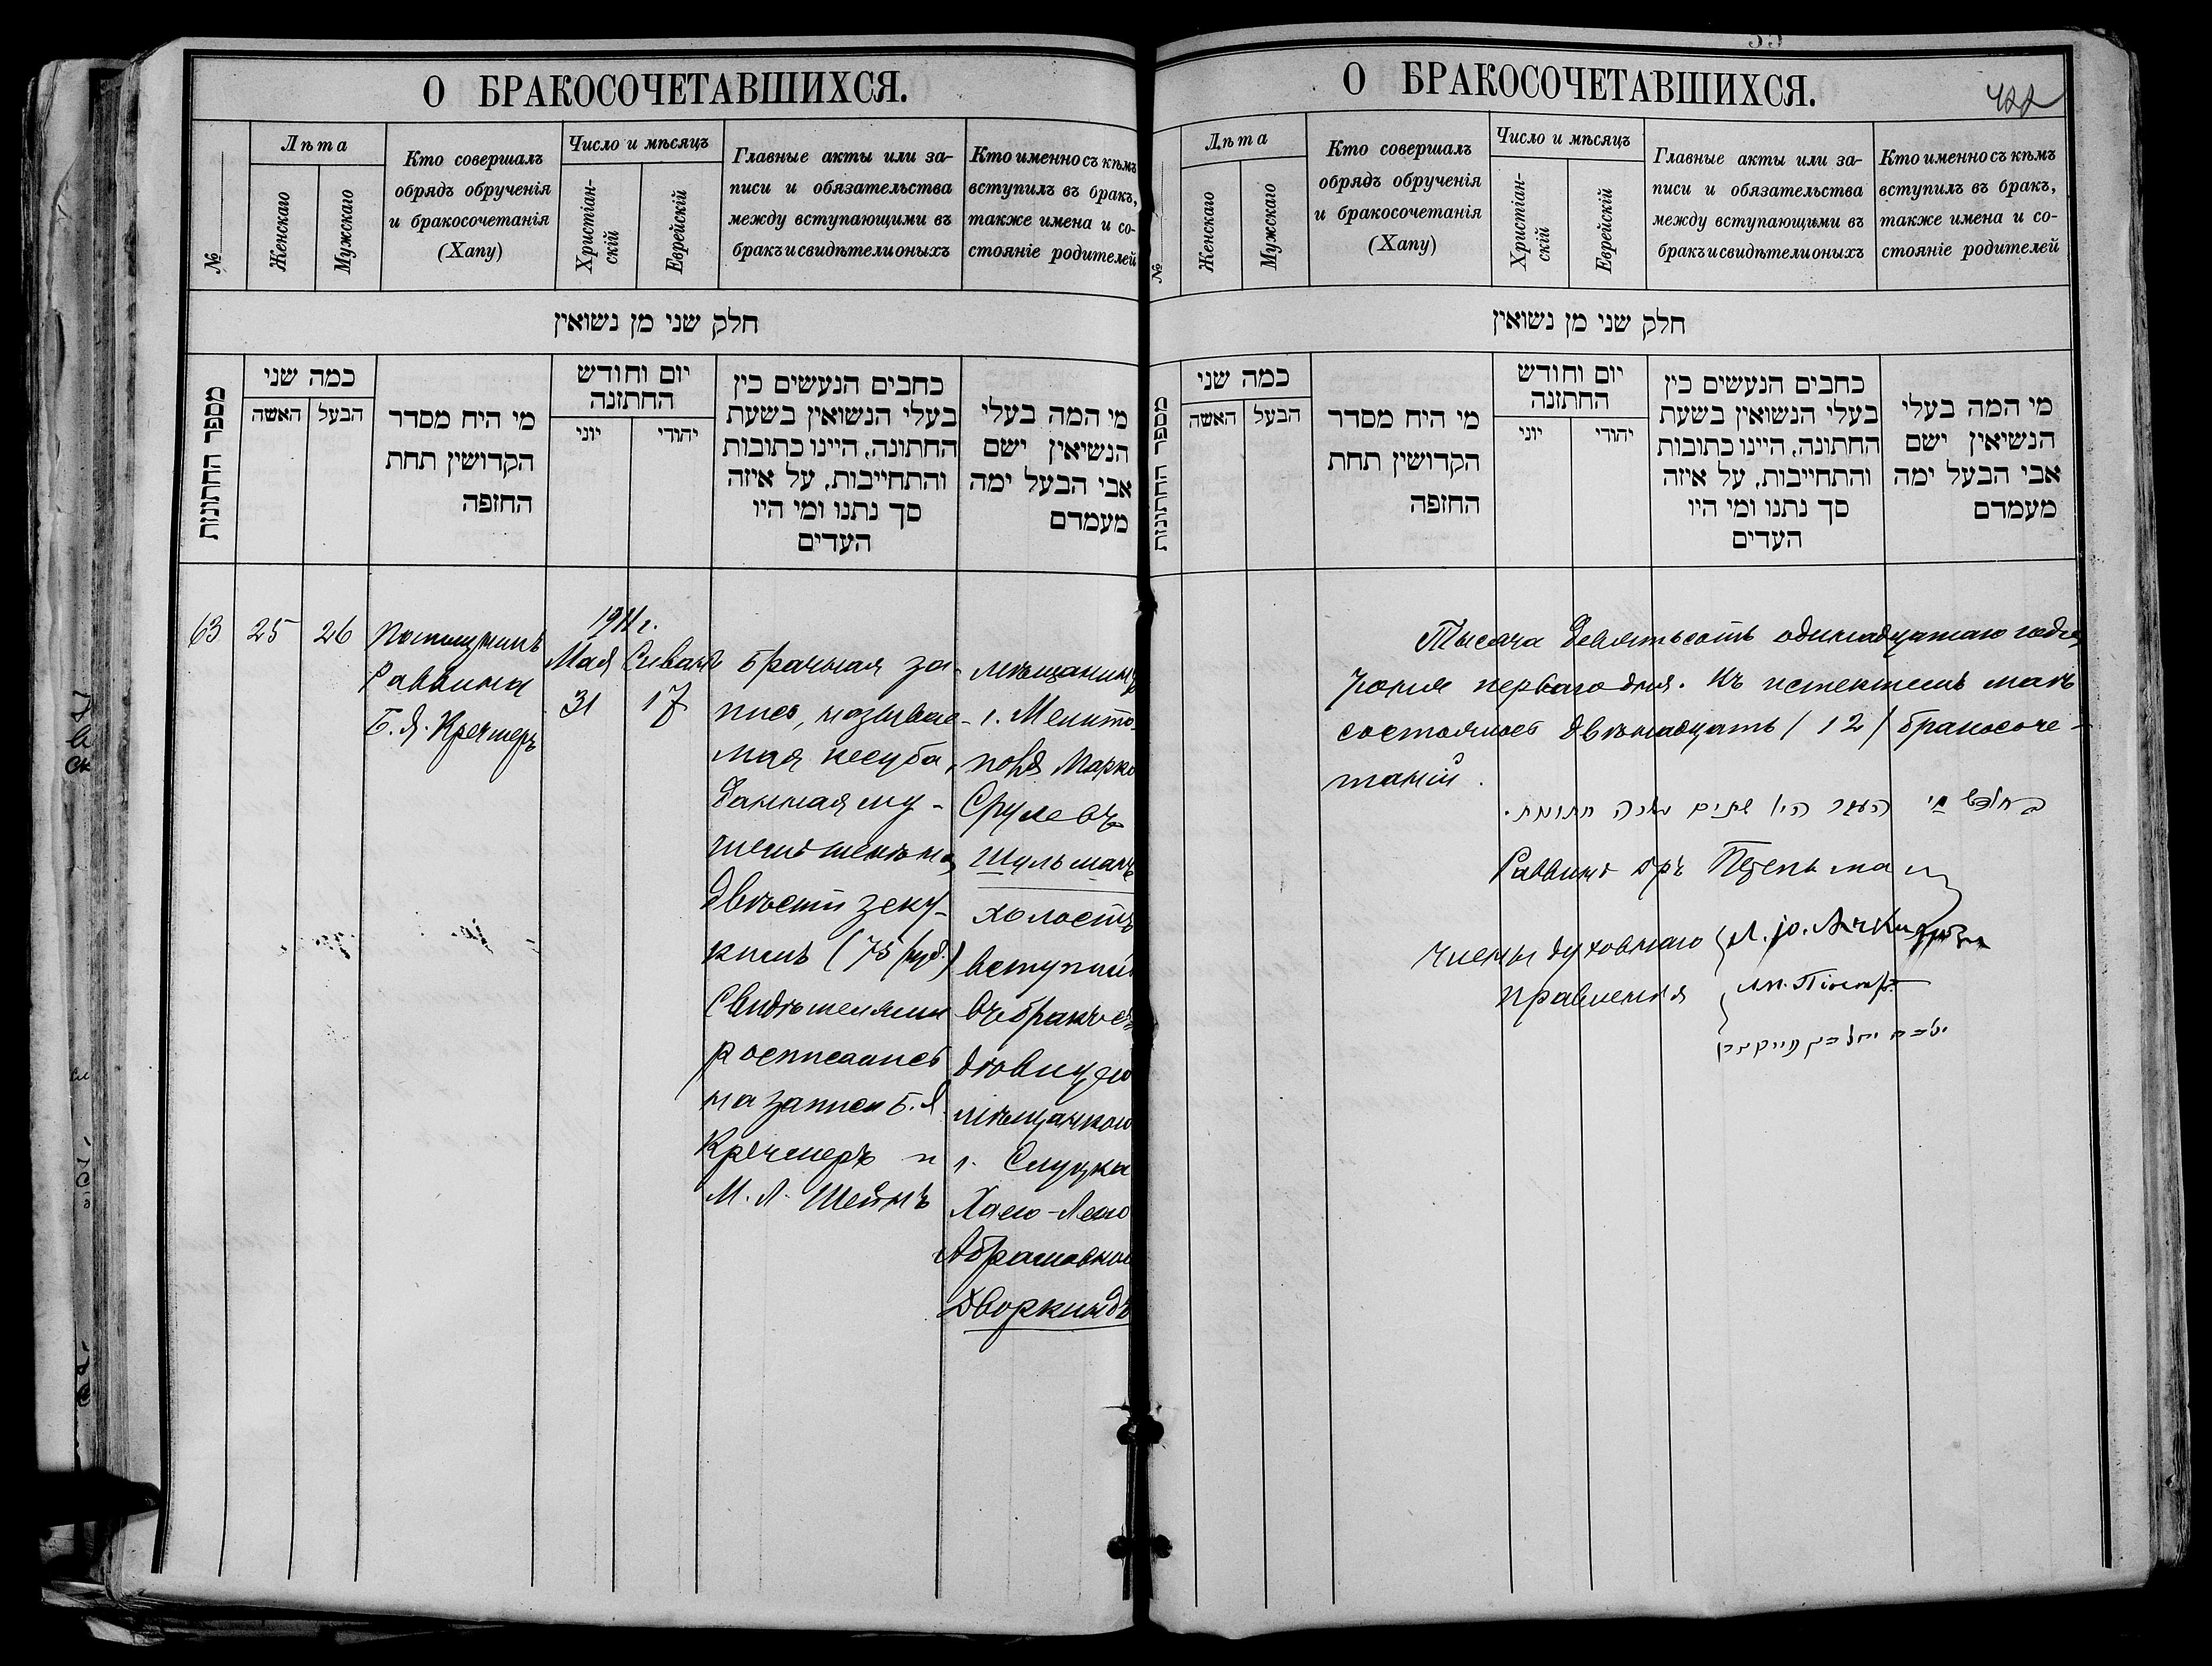 О БРАКОСОЧЕТАВШИХСЯ.
№
Лѣта
Женскаго
Мужскаго
Кто совершалъ
обрядъ обрученія
и бракосочетанія
(Хапу)
Число и мѣсяцъ
Христіан-
скій
Еврейскій
Главные акты или за-
писи и обязательства
между вступающими въ
бракъ и свидѣтели оныхъ
Кто именно съ кѣмъ
вступилъ въ бракъ,
также имена и со-
стояніе родителей
חלק שני מן נשואין
מספר החתונות
כמה שני
האשה
הבעל
מי היח מסדר
הקדושין תחת
החזפה
יום וחודש
החתזנה
יוני
יהודי
כחבים הנעשים כין
בעלי הנשואין בשעת
החתונה, היינו כתובות
והתחייבות, על איזה
סך נתנו ומי היו
העדים
מי המה בעלי
הנשיאין ישם
אבי הבעל ימה
מעמדם
63
25
26
Помощникъ
Раввина
Б. Я. Кречмеръ
1911 г.
Мая
31
Сивана
17
Брачная за-
пись, называе-
мая кесуба,
данная му-
жемъ женѣ на
двѣсти зеку-
кимъ (75 руб.)
Свидѣтелями
росписались
на записи Б. Я.
Кречмеръ и
М. Л. Шейнъ
мѣщанинъ
г. Мелито-
поля Марко
Срулевъ
Шульманъ
холостъ
вступилъ
въ бракъ съ
дѣвицею
мѣщанкою
г. Слуцка
Хаею-Леею
Абрамовною
Дворкиндъ
О БРАКОСОЧЕТАВШИХСЯ.
422
№
Лѣта
Женскаго
Мужскаго
Кто совершалъ
обрядъ обрученія
и бракосочетанія
(Хапу)
Число и мѣсяцъ
Христіан-
скій
Еврейскій
Главные акты или за-
писи и обязательства
между вступающими въ
бракъ и свидѣтели оныхъ
Кто именно съ кѣмъ
вступилъ въ бракъ,
также имена и со-
стояніе родителей
חלק שני מן נשואין
מספר החתונות
כמה שני
האשה
הבעל
מי היח מסדר
הקדושין תחת
החזפה
יום וחודש
החתזנה
יוני
יהודי
כחבים הנעשים כין
בעלי הנשואין בשעת
החתונה, היינו כתובות
והתחייבות, על איזה
סך נתנו ומי היו
העדים
מי המה בעלי
הנשיאין ישם
אבי הבעל ימה
מעמדם
Тысяча девятьсотъ одинадцатаго года
Іюня перваго дня. Въ истекшемъ маѣ
состоялось двѣнадцать (12) бракосоче-
таній.
שתים עשרה חתונות.
Раввинъ
Члены духовнаго
правленія